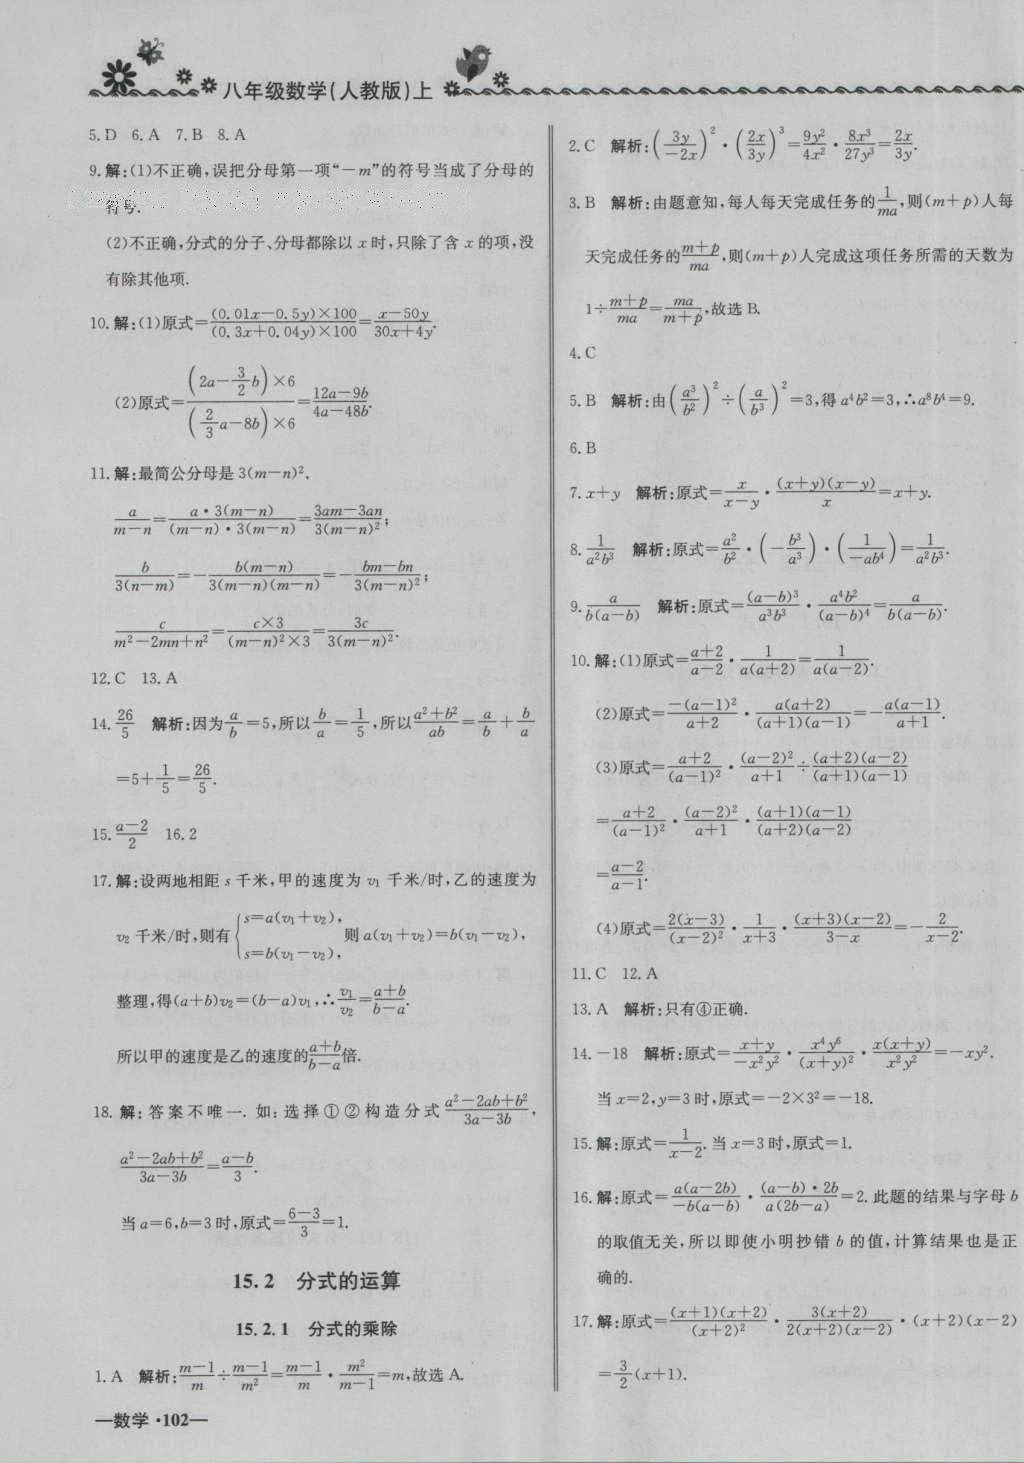 八年级数学(人教版)上
5. D 6. A 7. B 8. A
9. 解:(1)不正确,误把分母第一项“-m”的符号当成了分母的
符号.
(2)不正确,分式的分子、分母都除以 x 时,只除了含 x 的项,没
有除其他项.
10. 解:(1)原式=\frac{(0.01x-0.5y)×100}{(0.3x+0.04y)×100}=\frac{x-50y}{30x+4y}.
(2)原式=\frac{(2a-\frac{3}{2}b)×6}{(\frac{2}{3}a-8b)×6}=\frac{12a-9b}{4a-48b}.
11. 解:最简公分母是 3(m-n)².
\frac{a}{m-n}=\frac{a·3(m-n)}{(m-n)·3(m-n)}=\frac{3am-3an}{3(m-n)²};
\frac{b}{3(n-m)}=-\frac{b(m-n)}{3(m-n)(m-n)}=-\frac{bm-bn}{3(m-n)²};
\frac{c}{m²-2mn+n²}=\frac{c×3}{(m-n)²×3}=\frac{3c}{3(m-n)²}.
12. C 13. A
14. \frac{26}{5} 解析:因为\frac{a}{b}=5,所以\frac{b}{a}=\frac{1}{5},所以\frac{a²+b²}{ab}=\frac{a}{b}+\frac{b}{a}
=5+\frac{1}{5}=\frac{26}{5}.
15. \frac{a-2}{2} 16. 2
17. 解:设两地相距 s 千米,甲的速度为 v₁ 千米/时,乙的速度为
v₂ 千米/时,则有{s=a(v₁+v₂), s=b(v₁-v₂), 则 a(v₁+v₂)=b(v₁-v₂),
整理,得(a+b)v₂=(b-a)v₁,∴\frac{v₁}{v₂}=\frac{a+b}{b-a}.
所以甲的速度是乙的速度的\frac{a+b}{b-a}倍.
18. 解:答案不唯一. 如:选择①②构造分式\frac{a²-2ab+b²}{3a-3b},
\frac{a²-2ab+b²}{3a-3b}=\frac{a-b}{3}.
当 a=6,b=3 时,原式=\frac{6-3}{3}=1.
15.2 分式的运算
15.2.1 分式的乘除
1. A 解析:\frac{m-1}{m}÷\frac{m-1}{m²}=\frac{m-1}{m}·\frac{m²}{m-1}=m,故选 A.
2. C 解析:(\frac{3y}{-2x})²·(\frac{2x}{3y})³=\frac{9y²}{4x²}·\frac{8x³}{27y³}=\frac{2x}{3y}.
3. B 解析:由题意知,每人每天完成任务的\frac{1}{ma},则(m+p)人每
天完成任务的\frac{m+p}{ma},则(m+p)人完成这项任务所需的天数为
1÷\frac{m+p}{ma}=\frac{ma}{m+p},故选 B.
4. C
5. B 解析:由(\frac{a³}{b²})²÷(\frac{a}{b³})²=3,得 a⁴b²=3,∴a⁸b⁴=9.
6. B
7. x+y 解析:原式=\frac{x}{x-y}·\frac{(x+y)(x-y)}{x}=x+y.
8. \frac{1}{a²b³} 解析:原式=\frac{a²}{b²}·(-\frac{b³}{a³})·(\frac{1}{-ab⁴})=\frac{1}{a²b³}.
9. \frac{a}{b(a-b)} 解析:原式=\frac{(a-b)³}{a³b³}·\frac{a⁴b²}{(a-b)⁴}=\frac{a}{b(a-b)}.
10. 解:(1)原式=\frac{a+2}{a-2}·\frac{1}{a(a+2)}=\frac{1}{a(a-2)}.
(2)原式=\frac{-(a-1)²}{a+2}·\frac{a(a+2)}{(a+1)(a-1)}=-\frac{a(a-1)}{a+1}.
(3)原式=\frac{a+2}{(a-1)²}·\frac{(a-2)²}{a+1}÷\frac{(a+2)(a-2)}{(a+1)(a-1)}
=\frac{a+2}{(a-1)²}·\frac{(a-2)²}{a+1}·\frac{(a+1)(a-1)}{(a+2)(a-2)}
=\frac{a-2}{a-1}.
(4)原式=\frac{2(x-3)}{(x-2)²}·\frac{1}{x+3}·\frac{(x+3)(x-2)}{3-x}=-\frac{2}{x-2}.
11. C 12. A
13. A 解析:只有④正确.
14. -18 解析:原式=\frac{x+y}{-x²y²}·\frac{x⁴y⁶}{(x+y)²}·\frac{x(x+y)}{x²y²}=-xy².
当 x=2,y=3 时,原式=-2×3²=-18.
15. 解:原式=\frac{1}{x-2}. 当 x=3 时,原式=1.
16. 解:原式=\frac{a(a-2b)}{-b(a-b)}·\frac{(a-b)·2b}{a(2b-a)}=2. 此题的结果与字母 b
的取值无关,所以即使小明抄错 b 的值,计算结果也是正
确的.
17. 解:原式=\frac{(x+1)(x+2)}{(x+2)²}·\frac{3(x+2)}{2(x+2)(x-2)}·(x+2)(x-2)
=\frac{3}{2}(x+1).
—数学·102—